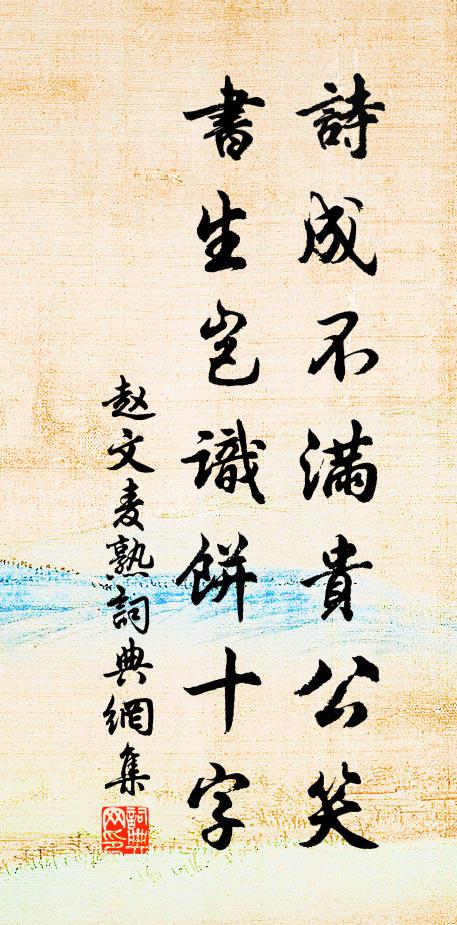 詩成不滿貴公笑
書生豈識餅十字
赵文麦熟詞典網集
詞典网印